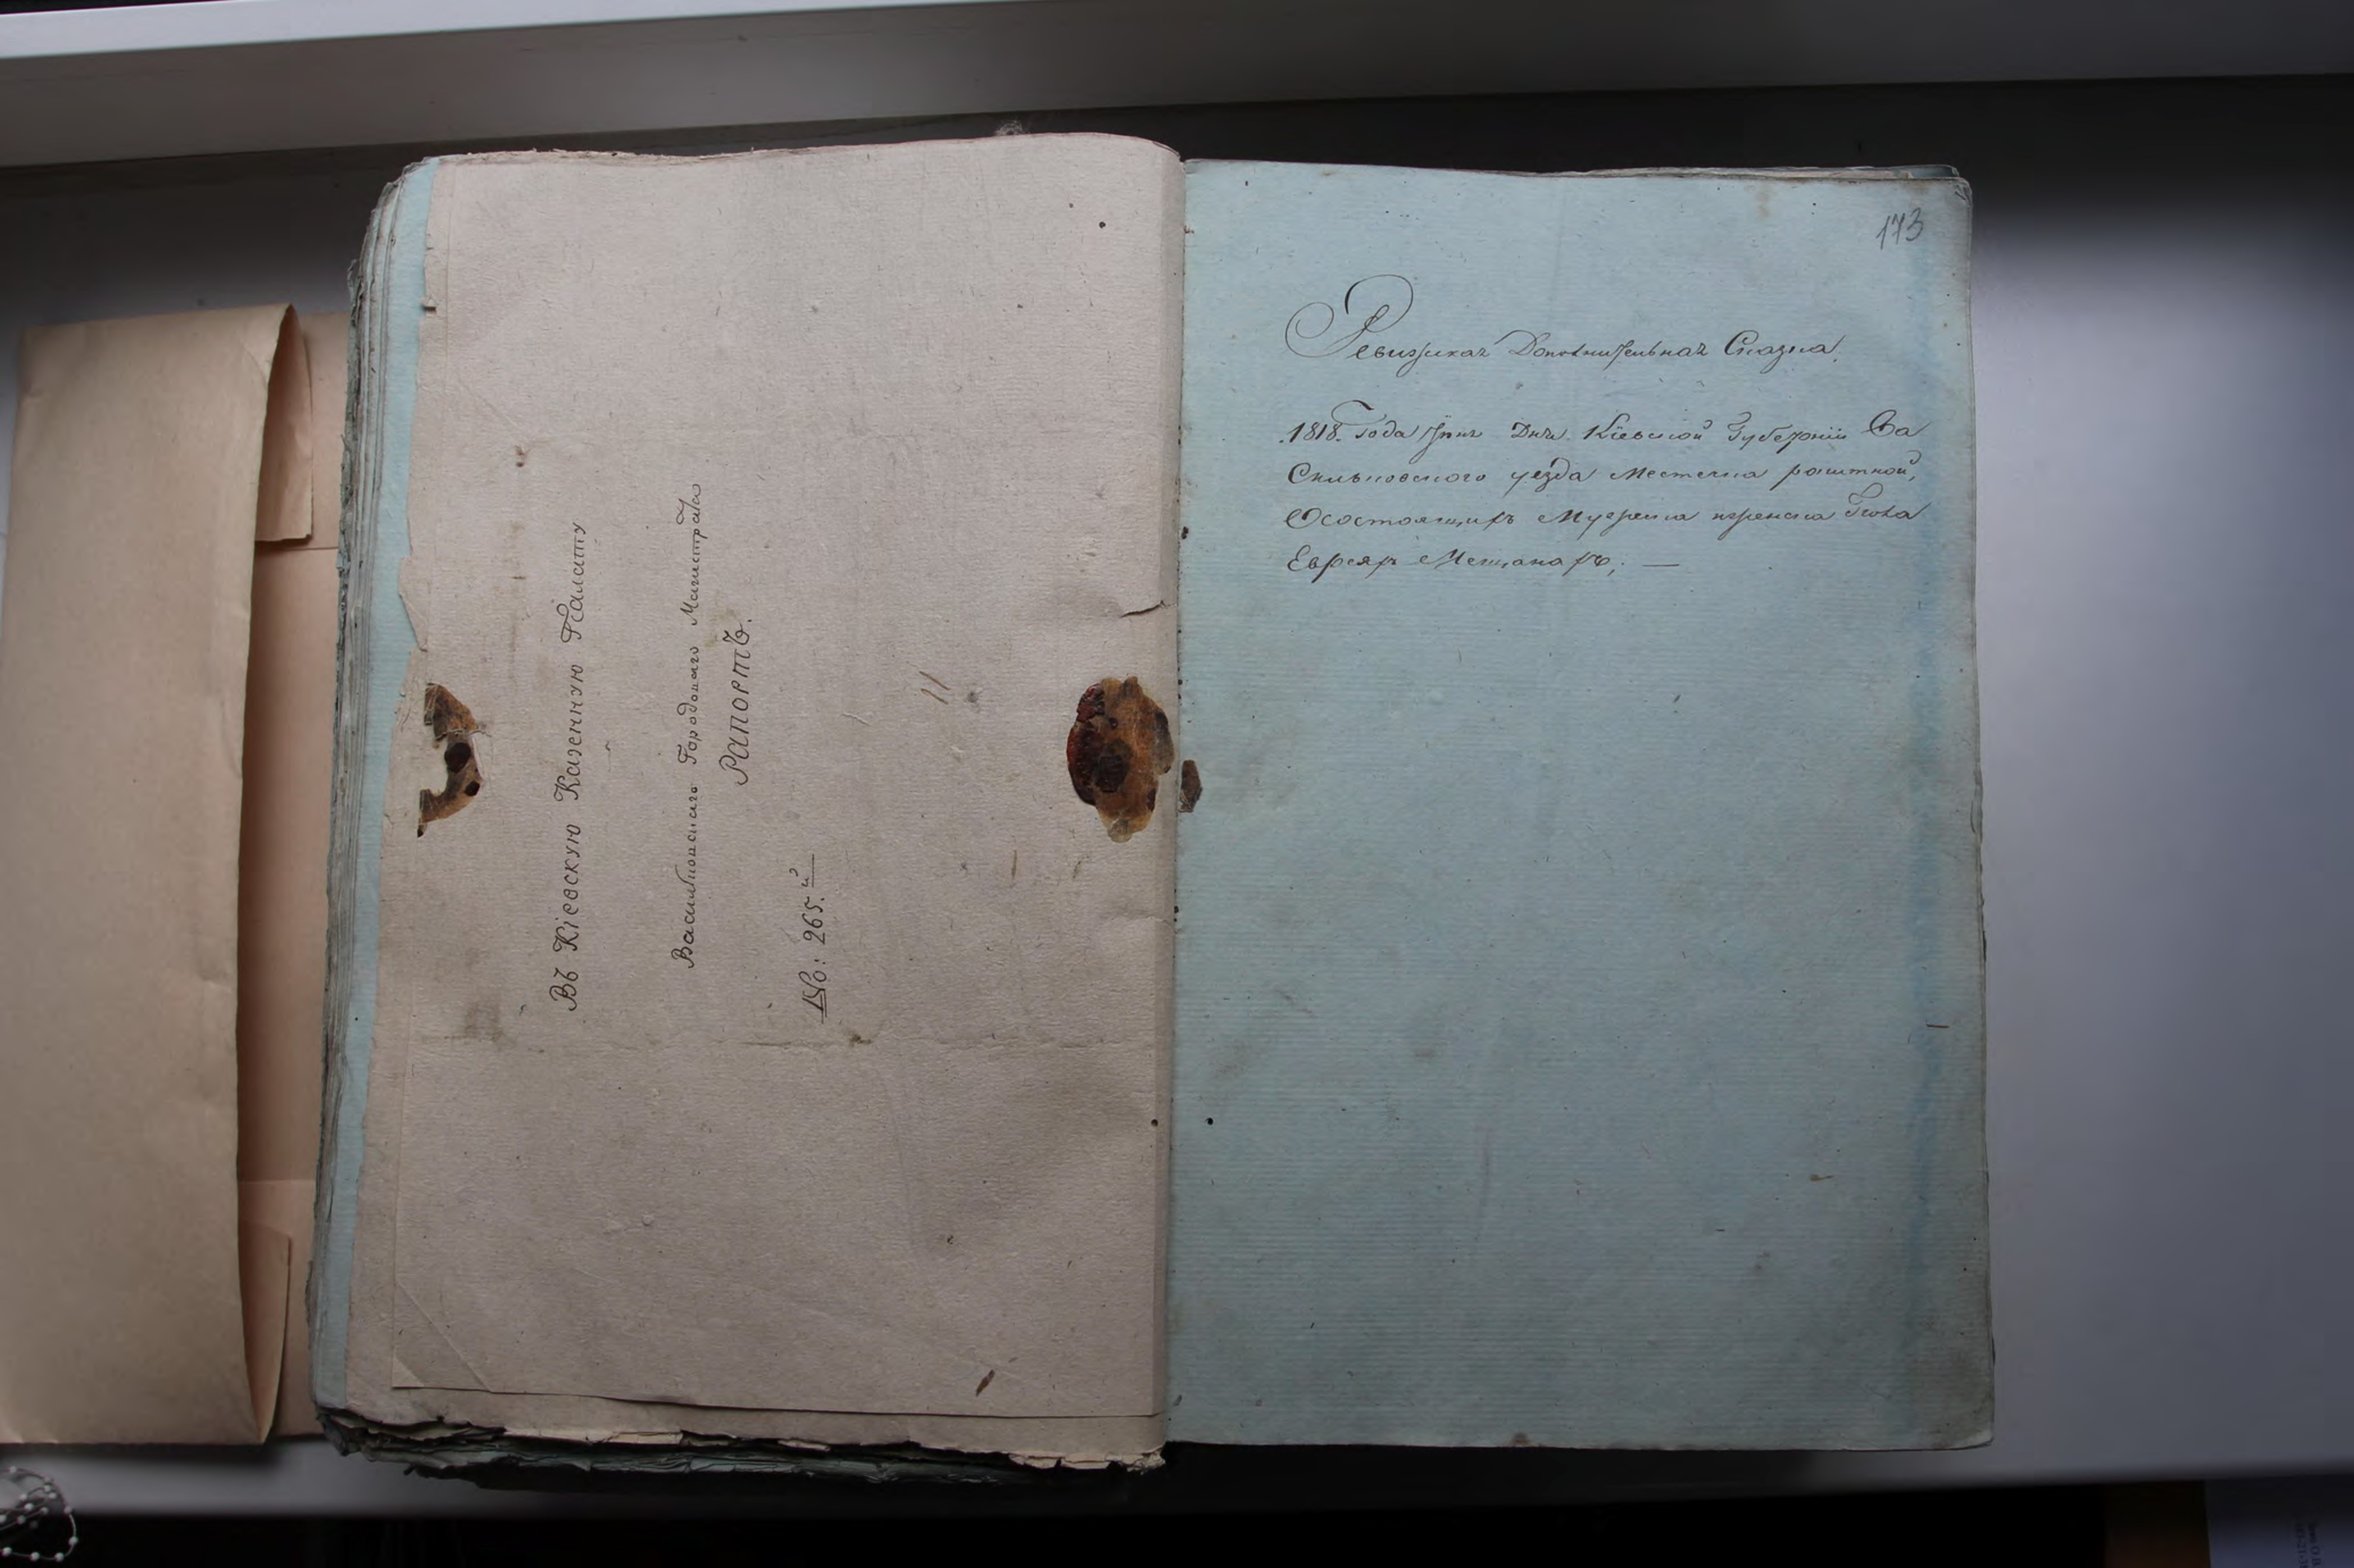 Въ Кіевскую Казенную Палату
Васильковскаго Городоваго Магистрата
Рапортъ.
№: 265.й
173
Ревизская Дополнительная Сказка.
1818. Года Дня. Кіевской Губерніи Ва
Сильковского уезда Местечка ракитной,
Осостоящихъ Мужеска иженска Пола
Евреяхъ Мещанахъ; —